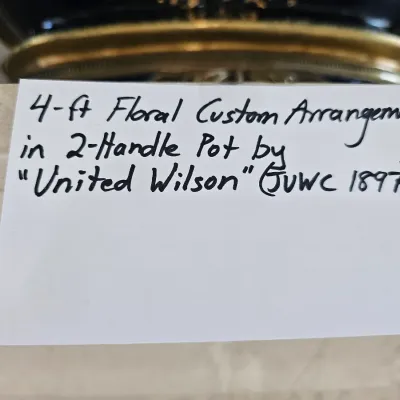 4-ft Floral Custom Arrangem
in 2-Handle Pot by
"United Wilson" (JUWC 1897